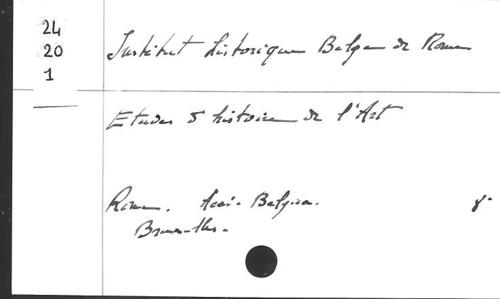 24
20
1
Institut historique Belge de Rome
Etudes d'histoire de l'Art
Rome. Acad. Belgica. 8°
Bruxelles.